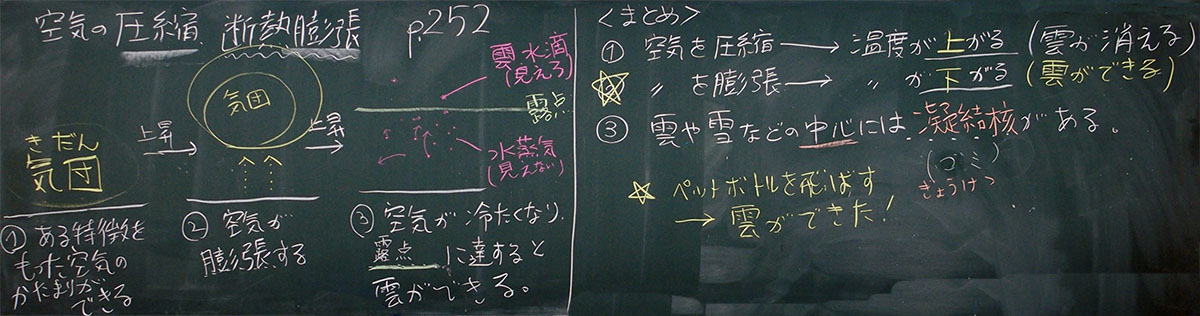 空気の圧縮 断熱膨張 p.252
きだん
気団
上昇
気団
上昇
雲 水滴
(見える)
露点
水蒸気
(見えない)
① ある特徴を
もった空気の
かたまりが
できる
② 空気が
膨張する
③ 空気が冷たくなり、
露点に達すると
雲ができる。
<まとめ>
① 空気を圧縮 → 温度が上がる (雲が消える)
② 〃 を膨張 → 〃 が下がる (雲ができる)
③ 雲や雪などの中心には凝結核がある。
(ゴミ)
ぎょうけつ
☆ ペットボトルを飛ばす
→ 雲ができた!